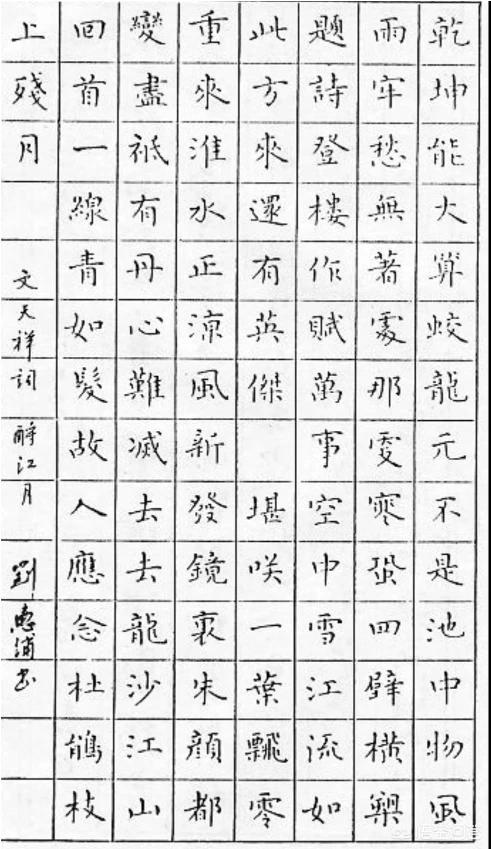 乾坤能大算蛟龍元不是池中物風
雨牢愁無著處那更寒蛩四壁橫槊
題詩登樓作賦萬事空中雪江流如
此方來還有英傑 堪咲一葉飄零
重來淮水正涼風新發鏡裏朱顏都
變盡祗有丹心難滅去去龍沙江山
回首一線青如髮故人應念杜鵑枝
上殘月 文天祥詞 酹江月 劉惠浦书